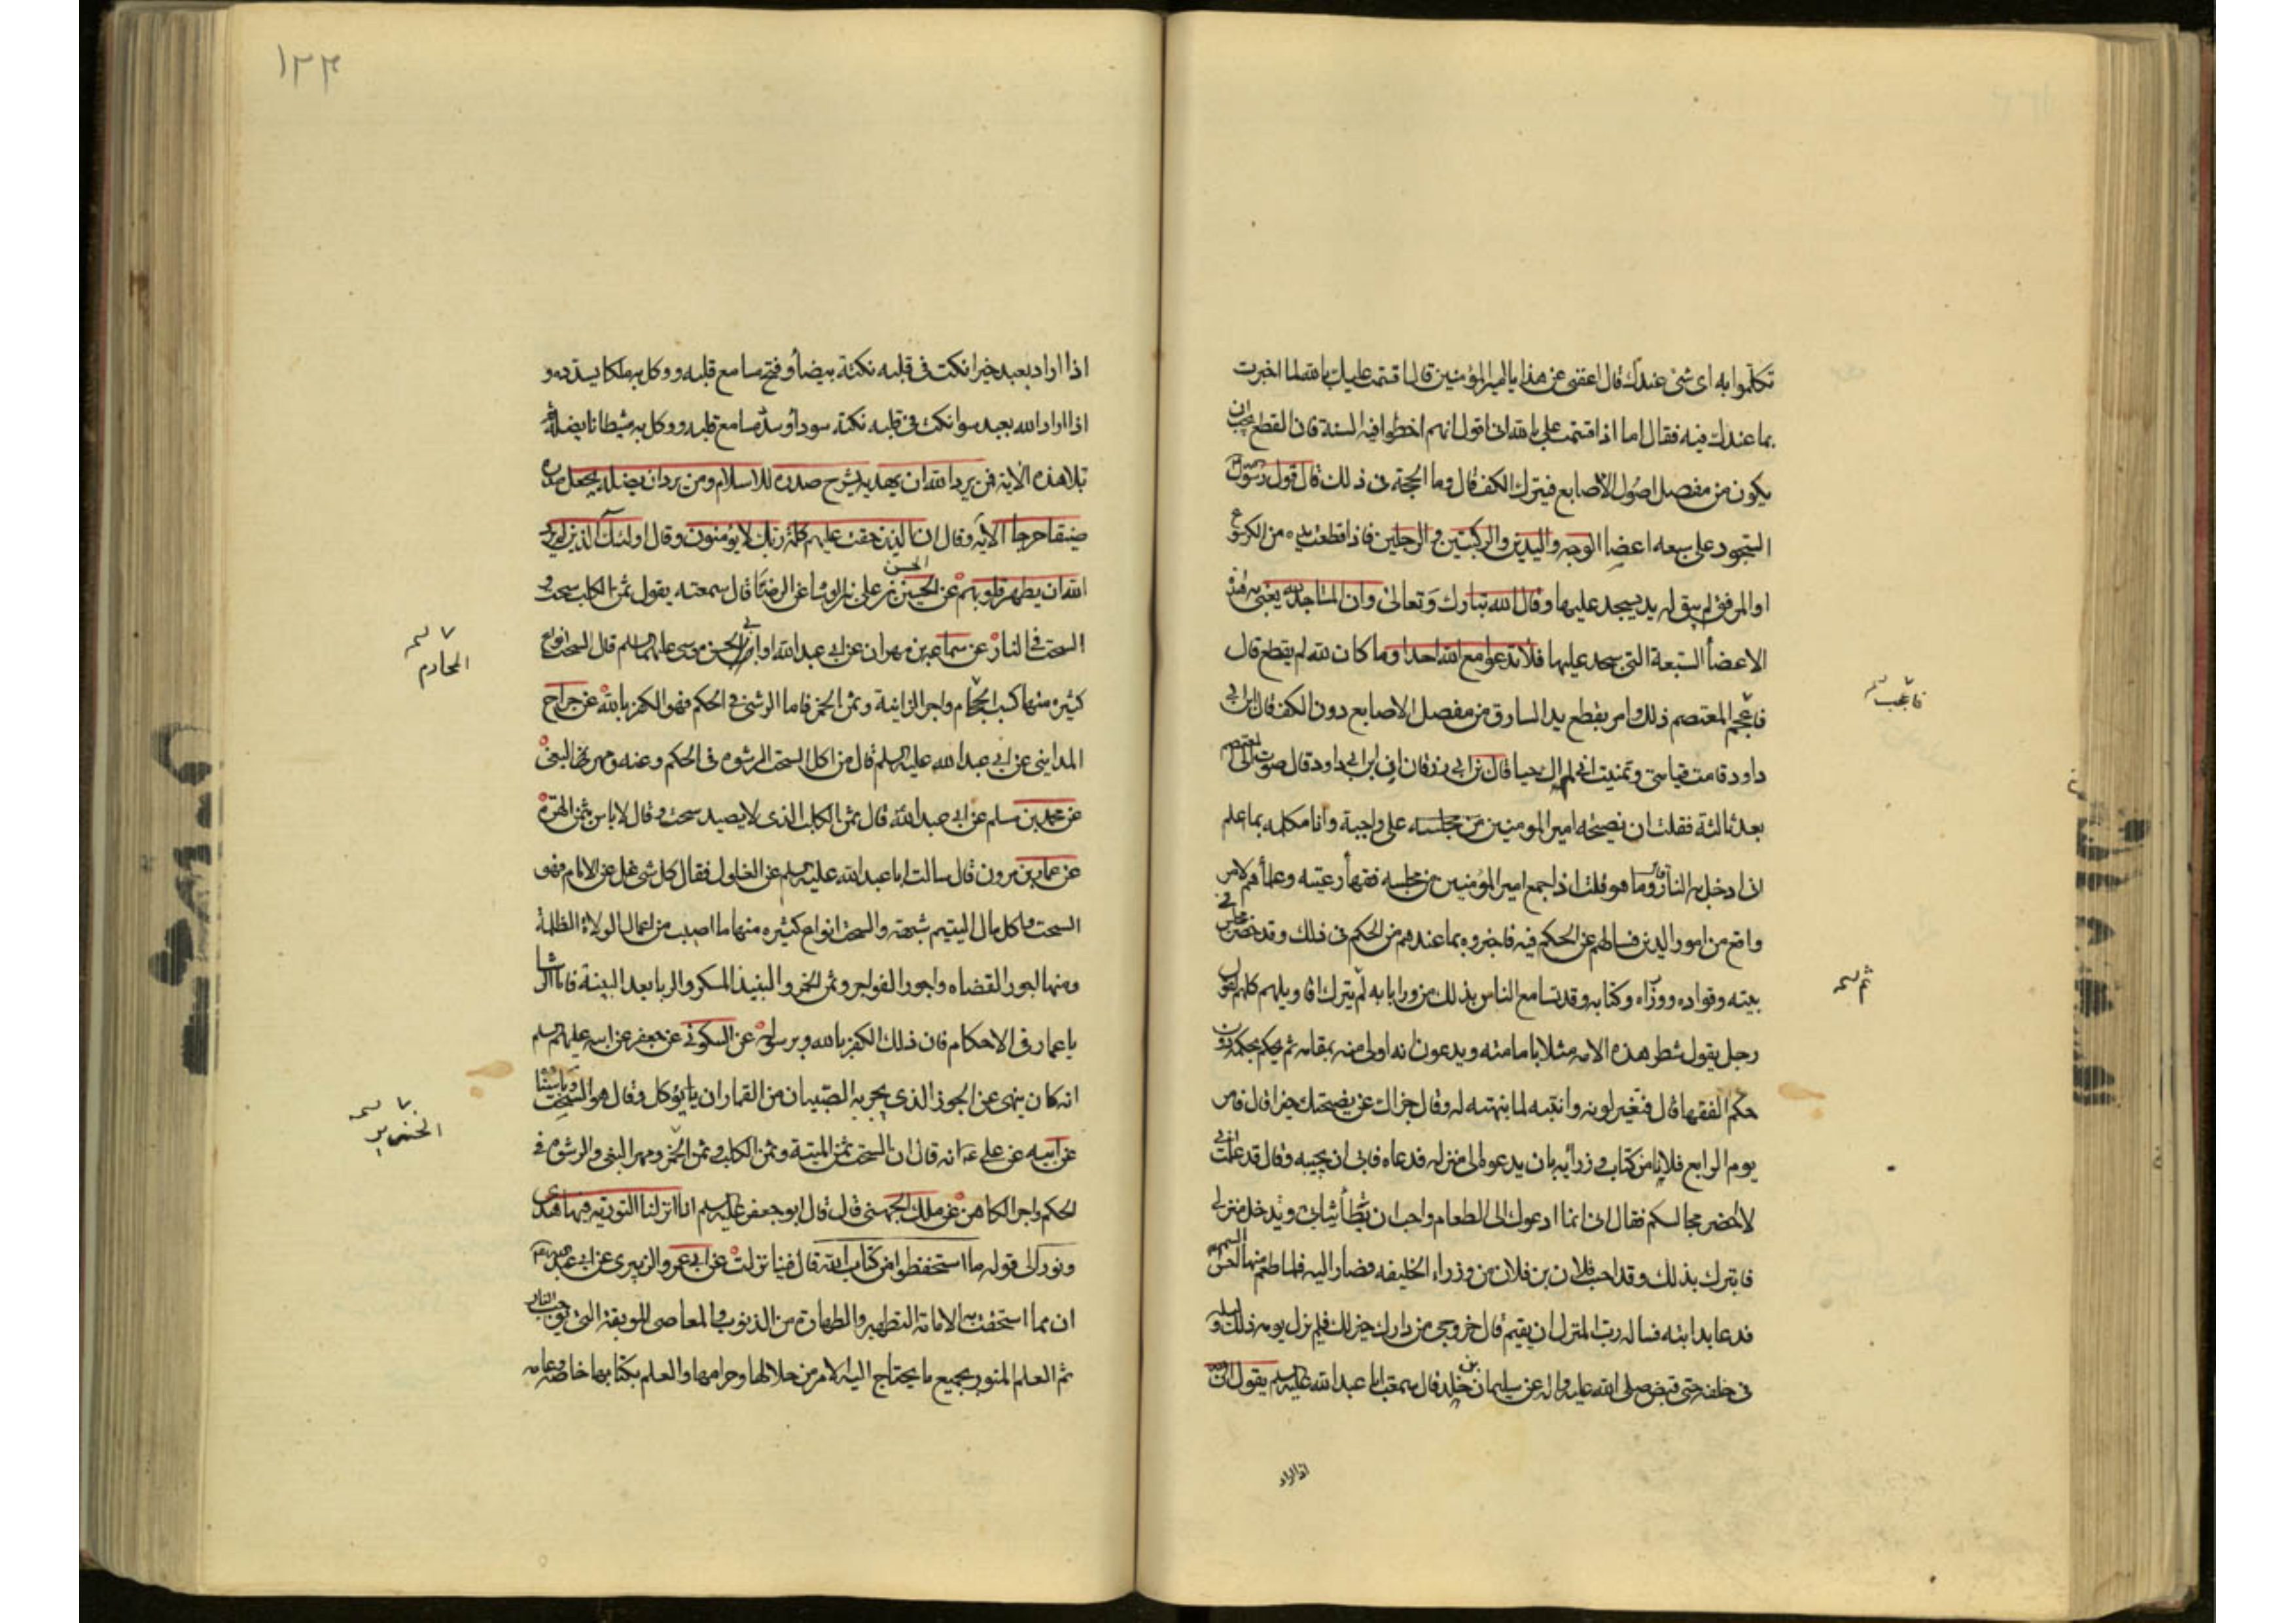 تكلموا به اى شئ عندك قال اعفنى عن هذا يا امير المؤمنين قال اقسمت عليك بالله لما اخبرت
بما عندك فيه فقال اما اذا اقسمت على بالله انى اقول انهم اخطوا فيه السنة فان القطع يجب ان
يكون من مفصل اصول الاصابع فيترك الكف قال وما الحجة فى ذلك قال قول رسول
السجود على سبعه اعضا الوجه واليدين والركبتين والرجلين فاذا قطعت يده من الكرسوع
او المرفق لم يبق له يد يسجد عليها وقال الله تبارك وتعالى وان المساجد لله يعنى به هذه
الاعضأ السبعة التى يسجد عليها فلا تدعوا مع الله احدا وما كان لله لم يقطع قال
فاعجم المعتصم ذلك وامر بقطع يد السارق من مفصل الاصابع دون الكف قال ابن ابى
داود قامت قيامتى وتمنيت انى لم اك حيا قال بن ابى زرقان ان ابن ابى داود قال صرت الى المعتصم
بعد ثالثة فقلت ان نصيحه امير المومنين من مجلسه على واجبة وانا مكلمه بما اعلم
انى ادخل به النار قال وما هو قلت اذا جمع امير المؤمنين من مجلسه فقهأ رعيته وعلمأهم لامر
واقع من امور الدين فسالهم عن الحكم فيه فاخبروه بما عندهم من الحكم فى ذلك وقد حضر مجلس
بيته وقواده ووزراه وكتابه وقد تسامع الناس بذلك من ورا بابه لم يترك اقاويلهم كلهم لقول
رجل يقول شطر هذه الامه مثلا بامامته ويدعون انه اولى منه بمقامه ثم يحكم بحكمه دون
حكم الفقها قال فتغير لونه وانتبه لما نبهته له وقال جزاك عن نصيحتك خيرا قال فامر
يوم الرابع فلانا من كتاب وزرأيه بان يدعوه الى منزله فدعاه فابى ان يجيبه وقال قد علمت انى
لا احضر مجالسكم فقال انى انما ادعوك الى الطعام واحب ان تطأ ثيابى وتدخل منزلى
فاتبرك بذلك وقد احب فلان بن فلان من وزراء الخليفه فصار اليه فلما طعم منها احس السم
فدعا بدابته فساله رب المنزل ان يقيم قال خروجى من دارك خير لك فلم يزل يومه ذلك وليله
فى خلفه حتى قبض صلى الله عليه واله عن سليمان بن خلد قال سمعت ابا عبد الله عليه السلم يقول ان الله
فاعجب
ثم
اذا اراد
١٢٣
اذا اراد بعبد خيرا نكت فى قلبه نكتة بيضأ وفتح مسامع قلبه ووكل به ملكا يسدده و
اذا اراد الله بعبد سوا نكت فى قلبه نكتة سودأ وسد مسامع قلبه ووكل به شيطانا يضله ثم
تلا هذه الاية فمن يرد الله ان يهديه يشرح صدره للاسلام ومن يرد ان يضله يجعل صدره
ضيقا حرجا الاية وقال ان الذين حقت عليهم كلمة ربك لا يؤمنون وقال اولئك الذين لم يرد
الله ان يطهر قلوبهم عن الحسين الحسن بن على بن الوشا عن الرضا قال سمعته يقول ثمن الكلب سحت و
السحت فى النار عن سماعه بن مهران عن ابى عبد الله او ابى الحسن موسى عليهما السلم قال السحت انواع
كثيره منها كسب الحجام واجر الزانية وثمن الخمر فاما الرشى فى الحكم فهو الكفر بالله عن جراح
المداينى عن ابى عبد الله عليه السلم قال من اكل السحت الرشوه فى الحكم وعنه ومهر البغى
عن محمد بن مسلم عن ابى عبد الله قال ثمن الكلب الذى لا يصيد سحت وقال لا باس بثمن الهرة
عن عمار بن مرون قال سالت ابا عبد الله عليه السلم عن الغلول فقال كل شى غل عن الامام فهو
السحت واكل مال اليتيم شبهته والسحت انواع كثيره منها ما اصيب من اعمال الولاة الظلمة
ومنها اجور القضاه واجور الفواجر وثمن الخمر والنبيذ المسكر والربا بعد البينة فاما الرشا
يا عمار فى الاحكام فان ذلك الكفر بالله وبرسوله عن السكونى عن جعفر عن ابيه عليهم السلم
انه كان ينهى عن الجوز الذى يجى به الصبيان من القمار ان يا يؤكل وقال هو السحت
عن ابيه عن على عه انه قال ان السحت ثمن الميتة وثمن الكلب وثمن الخمر ومهر البغى والرشوة فى
الحكم واجر الكاهن عن ملك الجهنى قال قال ابو جعفر عليه السلم انا انزلنا التورية فيها هدى
ونور الى قوله ما استحفظوا من كتاب الله قال فينا نزلت عن ابى عمرو الزبيرى عن ابى عبد الله عه
ان مما استحقت به الامامة التطهير والطهارة من الذنوب والمعاصى الموبقة التى توجب النار
ثم العلم المنور بجميع ما يحتاج اليه الامر من حلالها وحرامها والعلم بكتابها خاصة وعامه
المحارم
الخنزير